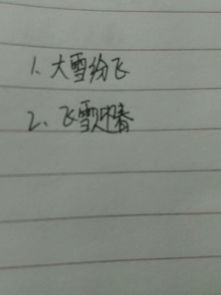 1、大雪纷飞
2、飞雪迎春